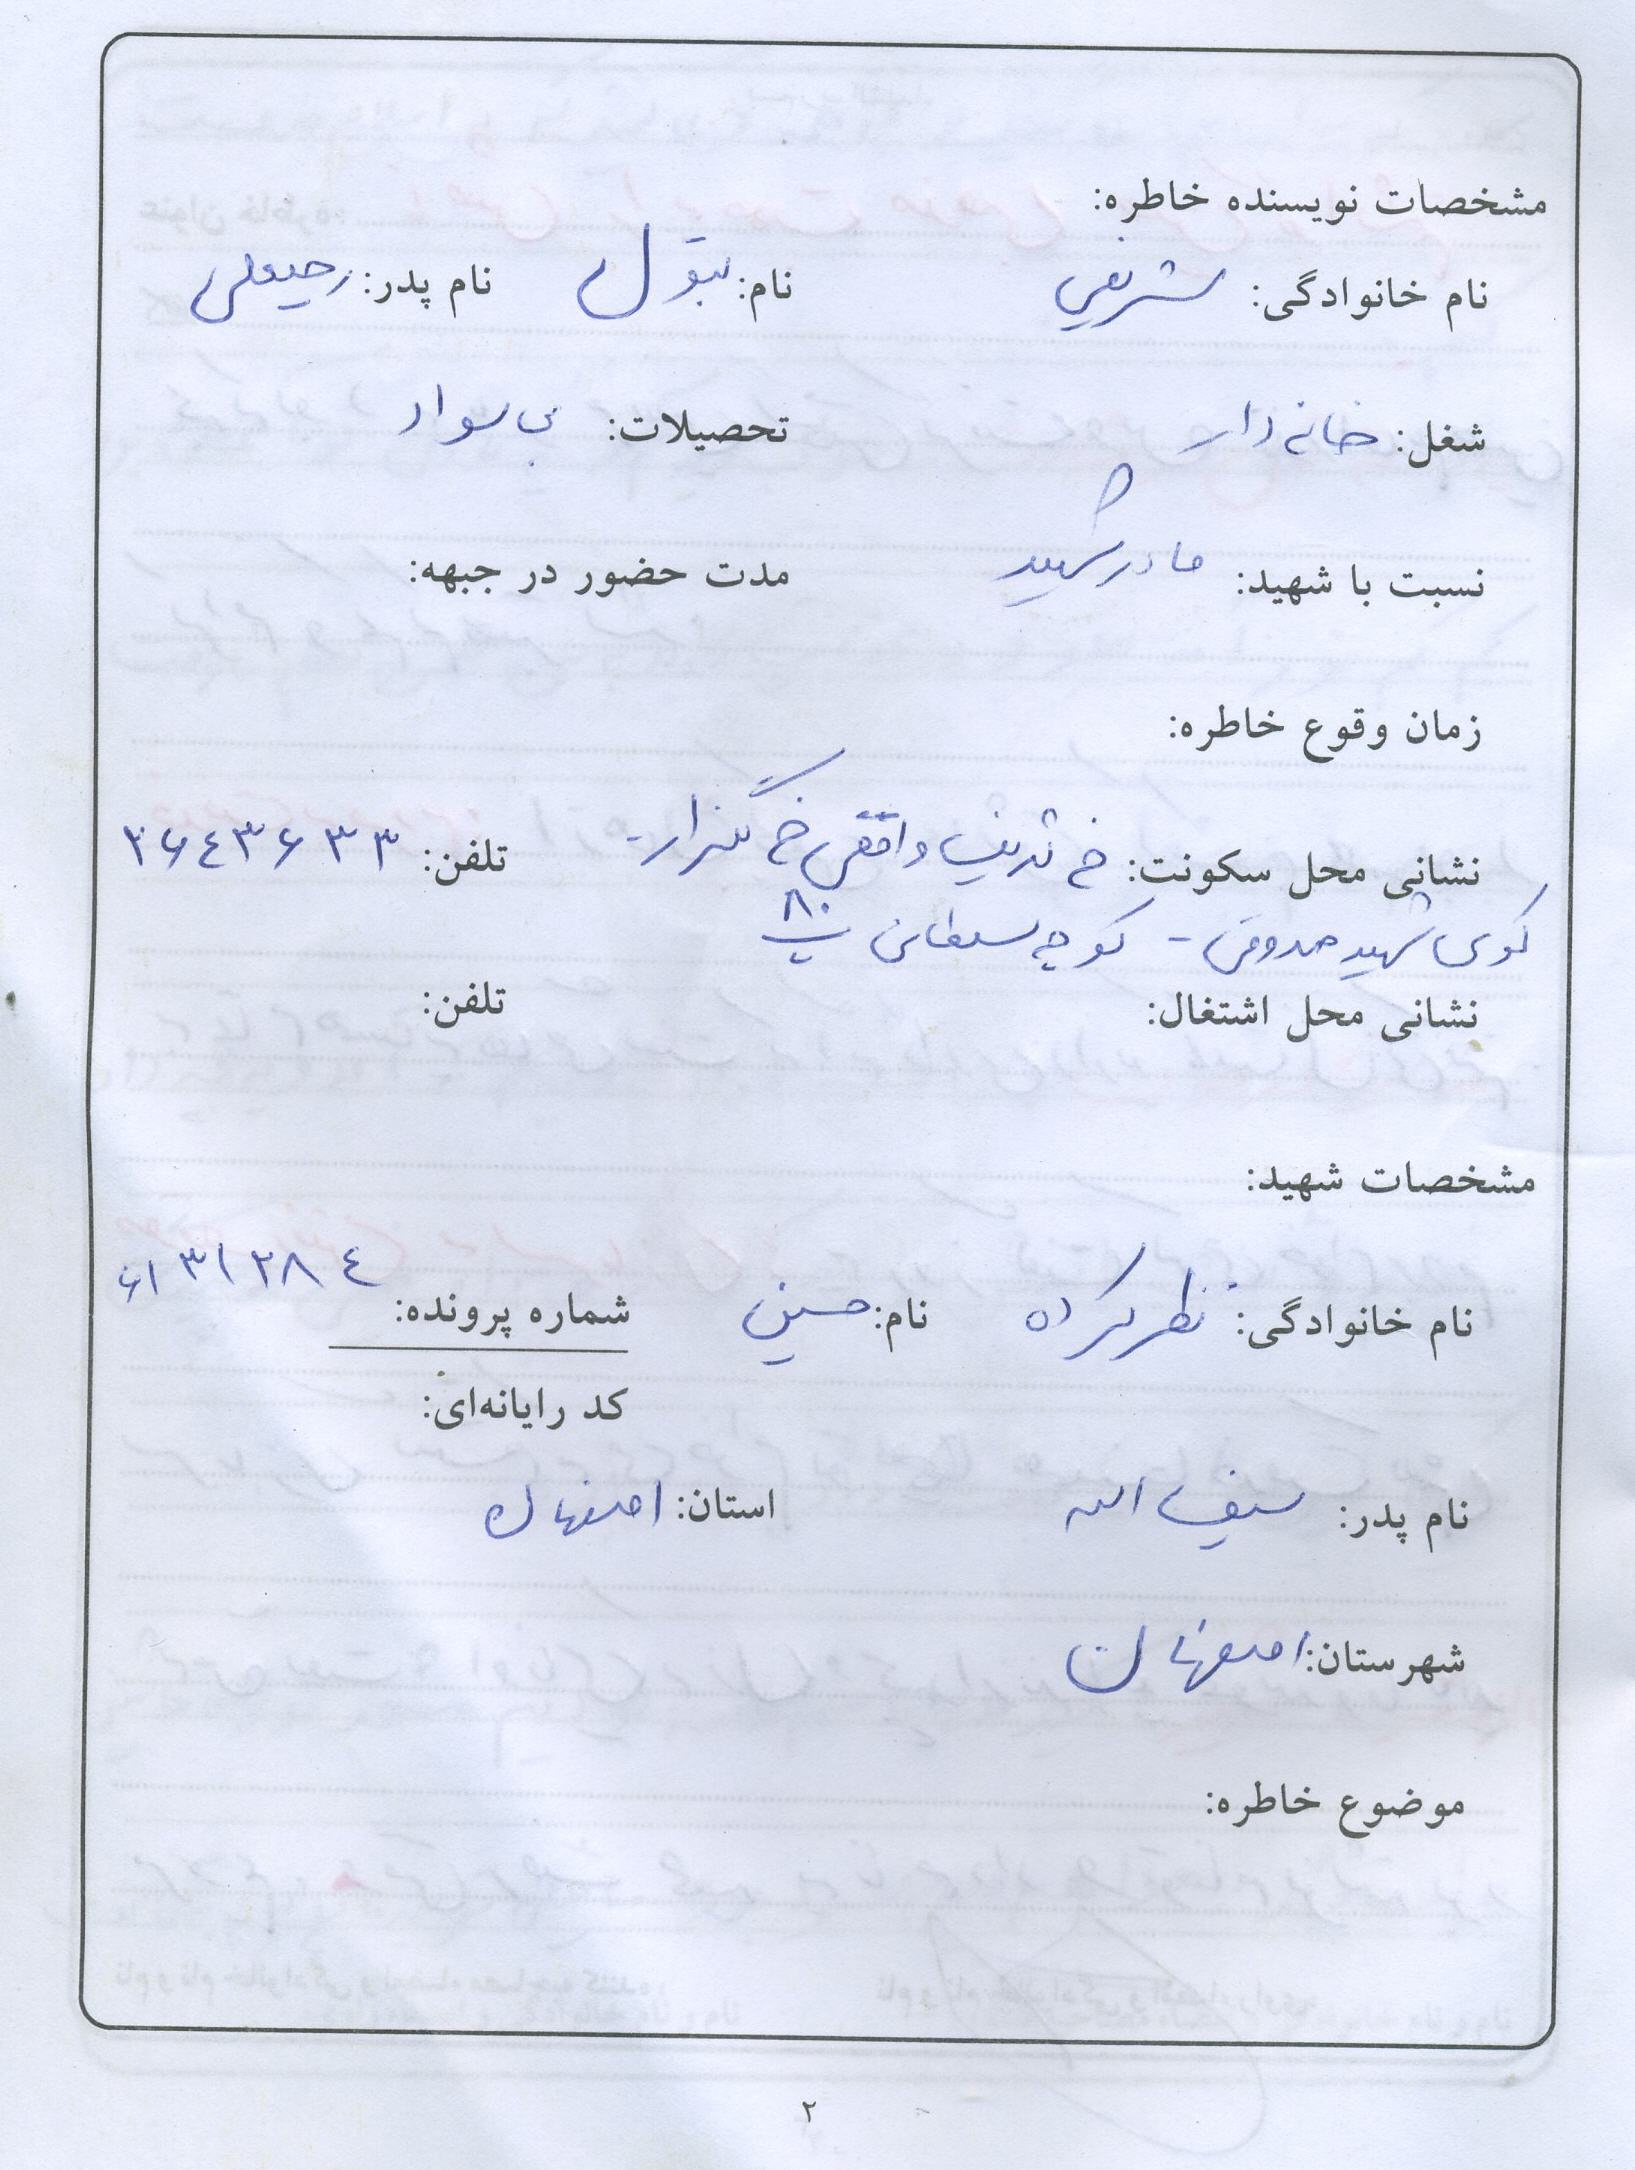 مشخصات نویسنده خاطره:
نام خانوادگی: شریفی نام: بتول نام پدر: رجبعلی
شغل: خانه دار تحصیلات: بی سواد
نسبت با شهید: مادر شهید مدت حضور در جبهه:
زمان وقوع خاطره:
نشانی محل سکونت: خ شریف واقفی خ گلزار - تلفن: ۲۶۴۳۶۳۳
کوی شهید صدوقی - کوچه سلطانی پ ۸۰
نشانی محل اشتغال: تلفن:
مشخصات شهید:
نام خانوادگی: نظرکرده نام: حسین شماره پرونده: ۶۱۳۱۲۸۴
کد رایانه‌ای:
نام پدر: سیف اله استان: اصفهان
شهرستان: اصفهان
موضوع خاطره:
۲